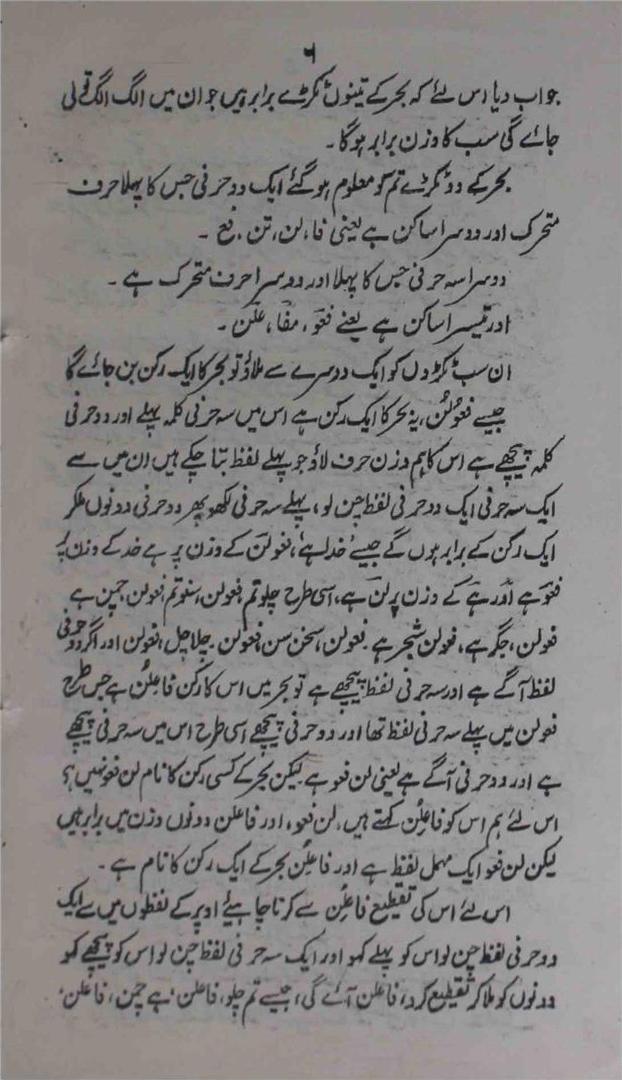 ۶
جواب دیا اس لئے کہ بحر کے تینوں ٹکڑے برابر ہیں جو ان میں الگ الگ تولی
جائے گی سب کا وزن برابر ہوگا۔
بحر کے دو ٹکڑے تم کو معلوم ہو گئے ایک دو حرفی جس کا پہلا حرف
متحرک اور دوسرا ساکن ہے یعنی فا، لن، تن، فع ۔
دوسرا سہ حرفی جس کا پہلا اور دوسرا حرف متحرک ہے ۔
اور تیسرا ساکن ہے یعنے فعو، مفا، علن ۔
ان سب ٹکڑوں کو ایک دوسرے سے ملاؤ تو بحر کا ایک رکن بن جائے گا
جیسے فعولن، یہ بحر کا ایک رکن ہے اس میں سہ حرفی کلمہ پہلے اور دو حرفی
کلمہ پیچھے ہے اس کا ہم وزن حرف لاؤ جو پہلے لفظ بتا چکے ہیں ان میں سے
ایک سہ حرفی ایک دو حرفی لفظ چن لو، پہلے سہ حرفی لکھو پھر دو حرفی دونوں ملکر
ایک رکن کے برابر ہوں گے جیسے خدا ہے، فعولن کے وزن پر ہے خدا کے وزن پر
فعو ہے اور ہے کے وزن پر لن ہے، اسی طرح چلو تم فعولن، سنو تم فعولن، چمن ہے
فعولن، جگر ہے، فعولن شجر ہے فعولن، سخن سن، فعولن۔ چلا چل، فعولن اور اگر دو حرفی
لفظ آگے ہے اور سہ حرفی لفظ پیچھے ہے تو بحر میں اس کا رکن فاعلن ہے جس طرح
فعولن میں پہلے سہ حرفی لفظ تھا اور دو حرفی پیچھے اسی طرح اس میں سہ حرفی پیچھے
ہے اور دو حرفی آگے ہے یعنی لن فعو ہے لیکن بحر کے کسی رکن کا نام لن فعو نہیں ہے
اس لئے ہم اس کو فاعلن کہتے ہیں، لن فعو، اور فاعلن دونوں وزن میں برابر ہیں
لیکن لن فعو ایک مہمل لفظ ہے اور فاعلن بحر کے ایک رکن کا نام ہے ۔
اس لئے اس کی تقطیع فاعلن سے کرنا چاہیئے اوپر کے لفظوں میں سے ایک
دو حرفی لفظ چن لو اس کو پہلے کہو اور ایک سہ حرفی لفظ چن لو اس کو پیچھے کہو
دونوں کو ملا کر تقطیع کرو، فاعلن آئے گی، جیسے تم چلو، فاعلن، ہے چمن، فاعلن،